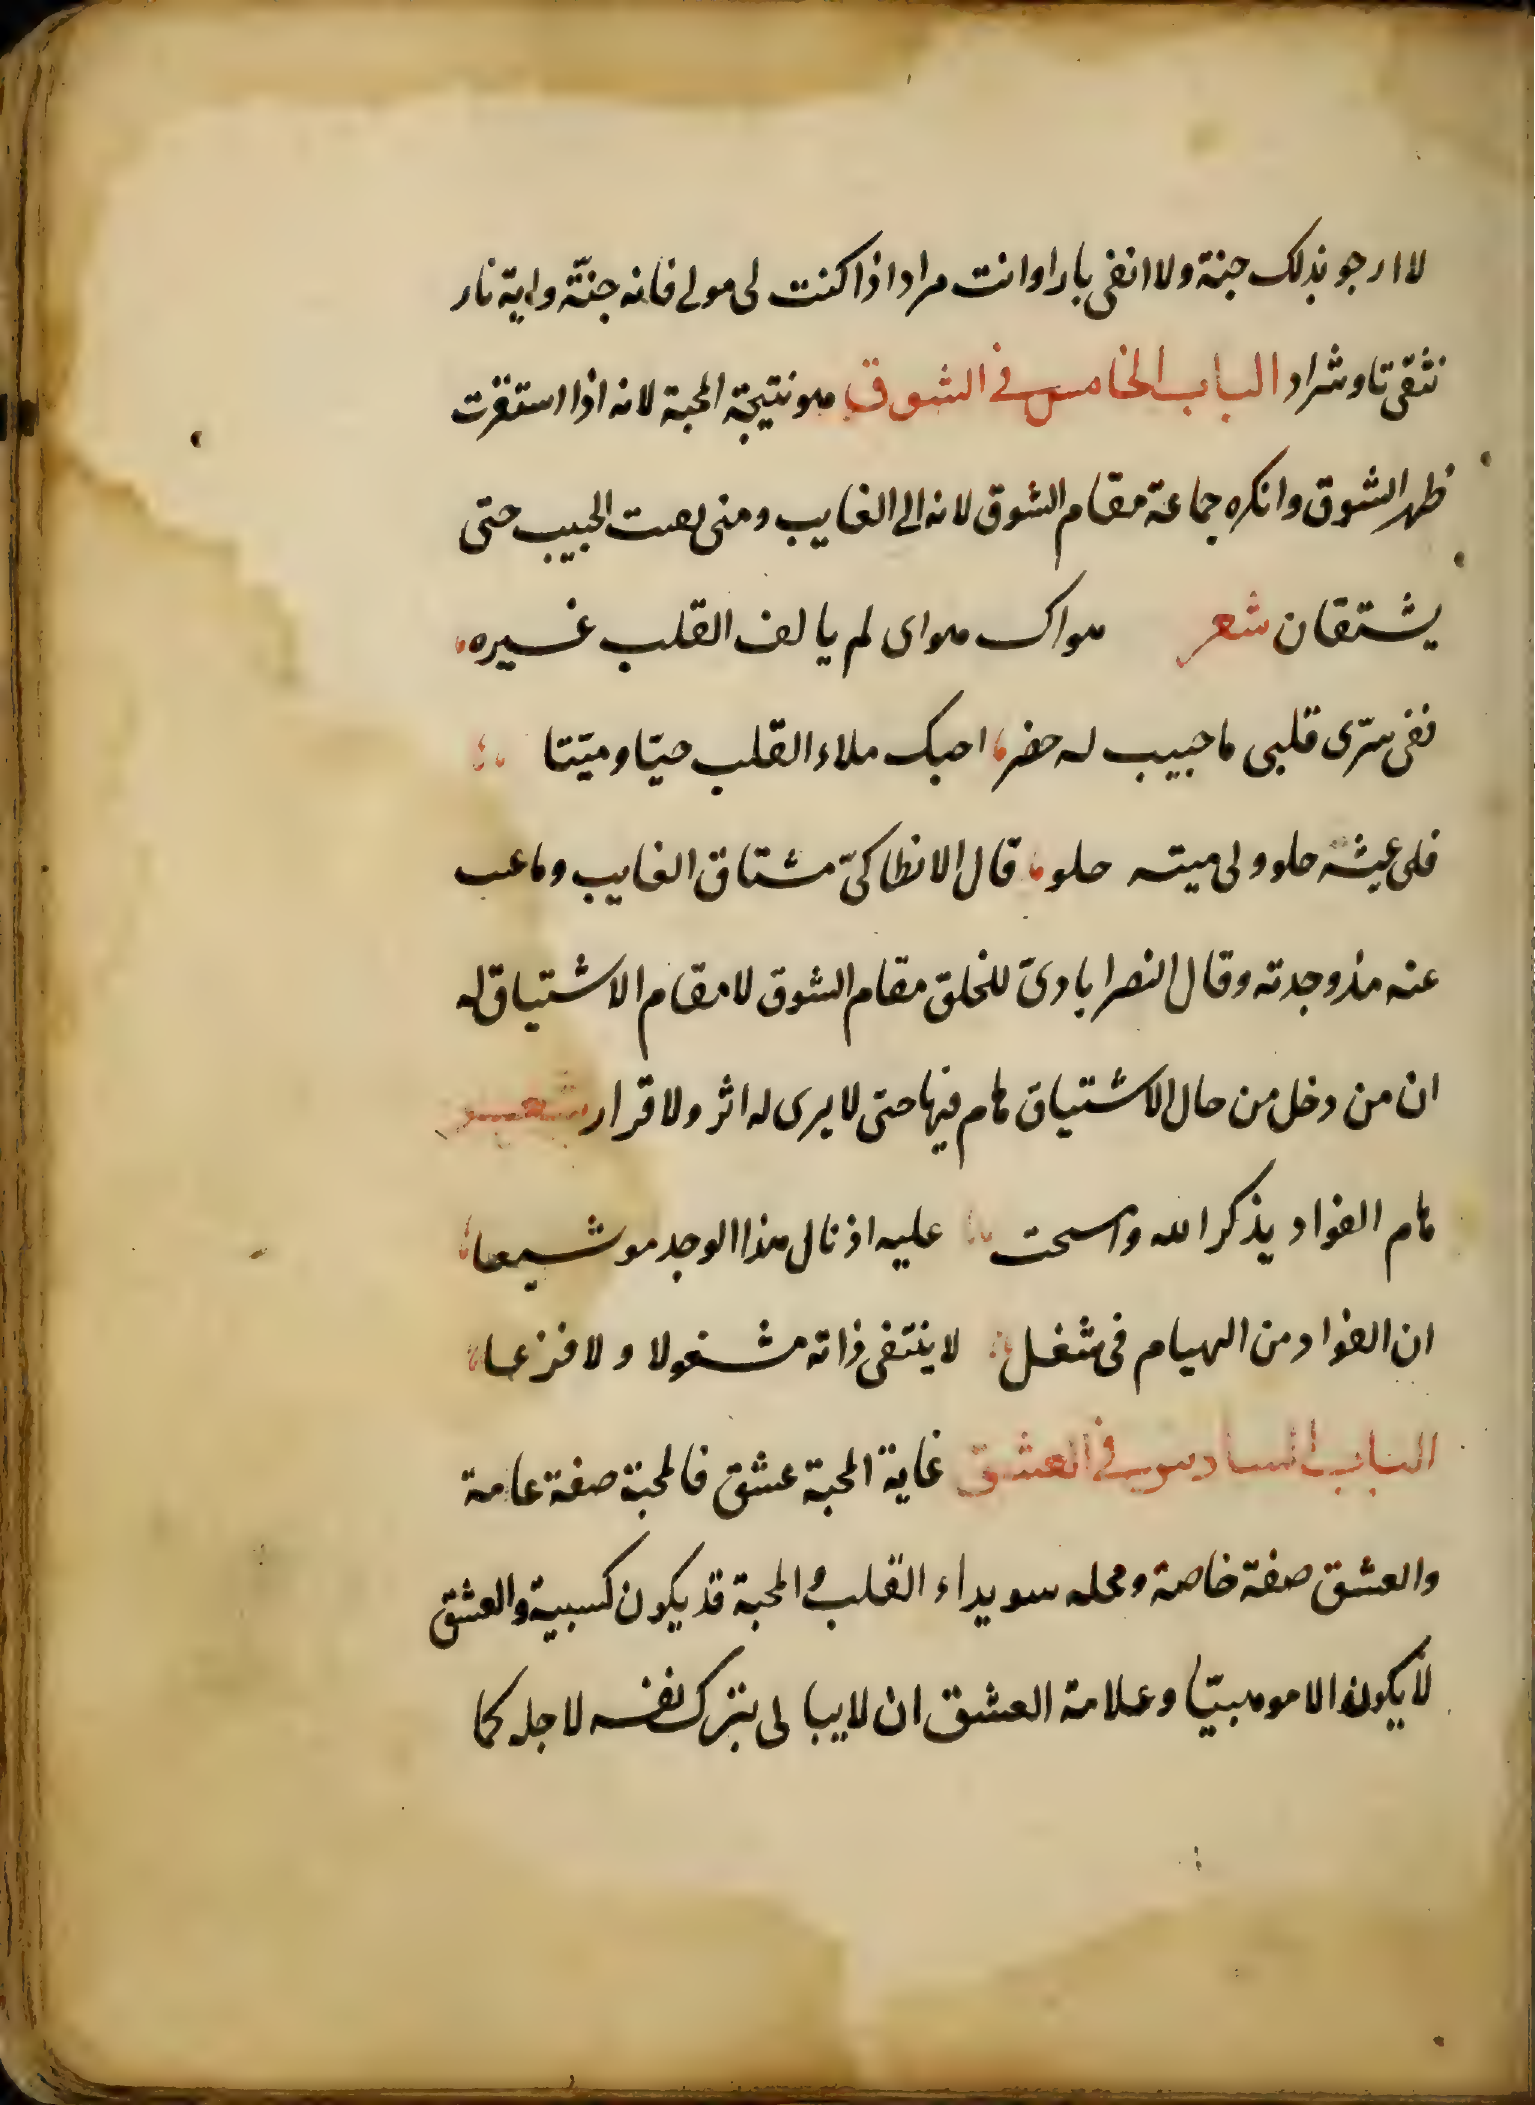 لا ارجو بذلك جنة ولا اتقى نارا وانت مراد اذا كنت لى مولى فانه جنّة واية نار
نتقى تا وشراد الباب الخامس فى الشوق هو نتيجة المحبة لانه اذا استقرت
ظهر الشوق وانكره جماعة مقام الشوق لانه الى الغايب ومتى الحبيب حتى
يشتقان شعر هواك هواى لم يالف القلب غيره
ففى سرّى قلبى ما حبيب له حضر احبك ملاء القلب حيّا وميّتا
فلى عيشة حلو ولى ميتة حلو قال الانطاكىّ مشتاق الغايب وما غبت
عنه مذ وجدته وقال النصرابادىّ للخلق مقام الشوق لا مقام الاشتياق له
ان من دخل من حال الاشتياق هام فيها حتى لا يرى له اثر ولا قرار شعر
هام الفواد يذكر الله عليه اذ نال هذا الوجد مو شيعا
ان الفواد من الهيام فى شغل لا ينتفى ذاته مشغولا ولا فزعا
الباب السادس فى العشق غاية المحبة عشق فالمحبة صفة عامة
والعشق صفة خاصة ومحله سويداء القلب والمحبة قد يكون كسبية والعشق
لا يكون الا موهبيّا وعلامة العشق ان لا يبالى بترك نفسه لاجله كما